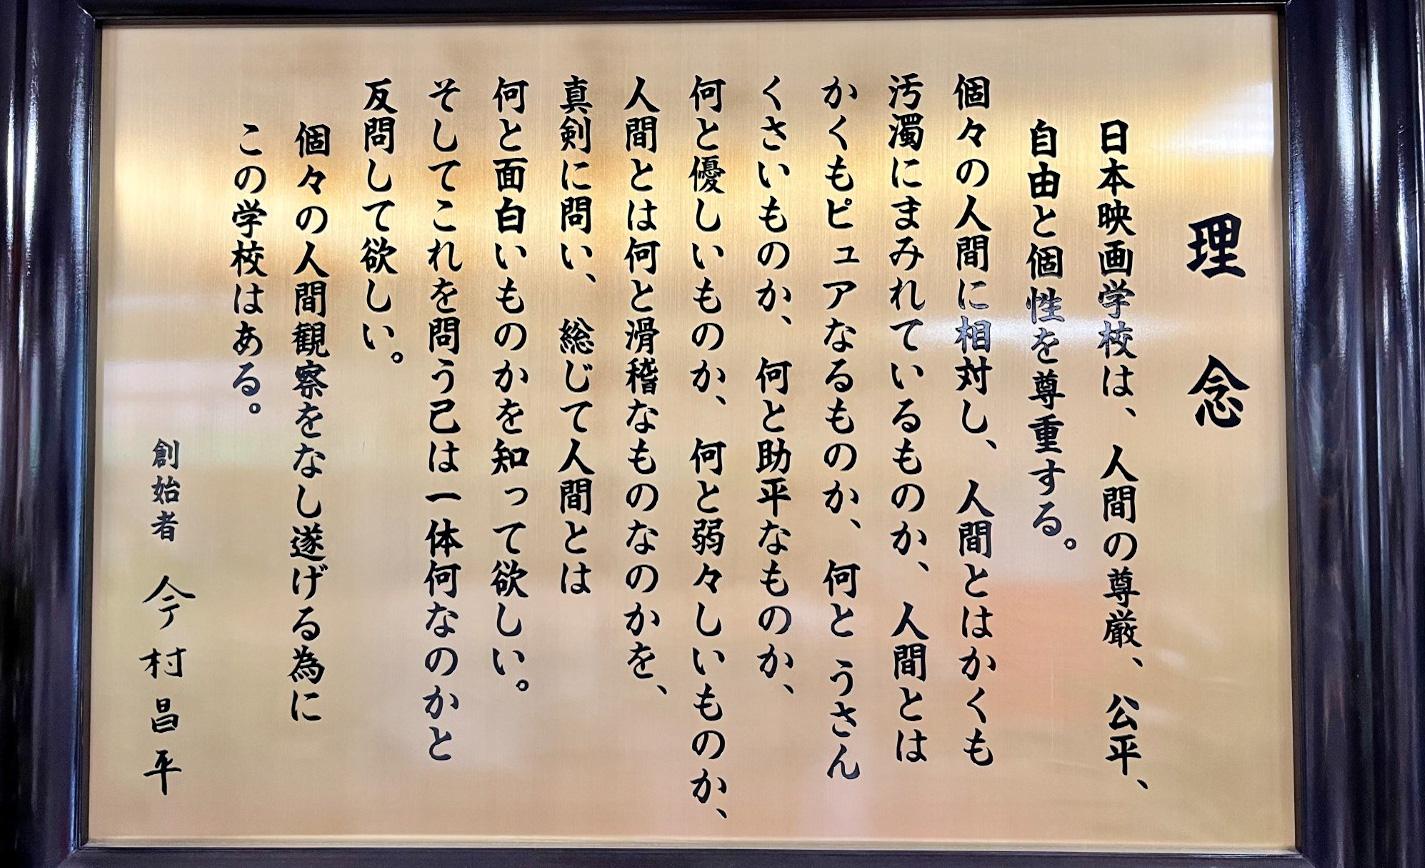 理念
日本映画学校は、人間の尊厳、公平、
自由と個性を尊重する。
個々の人間に相対し、人間とはかくも
汚濁にまみれているものか、人間とは
かくもピュアなるものか、何とうさん
くさいものか、何と助平なものか、
何と優しいものか、何と弱々しいものか、
人間とは何と滑稽なものなのかを、
真剣に問い、総じて人間とは
何と面白いものかを知って欲しい。
そしてこれを問う己は一体何なのかと
反問して欲しい。
個々の人間観察をなし遂げる為に
この学校はある。
創始者 今村昌平